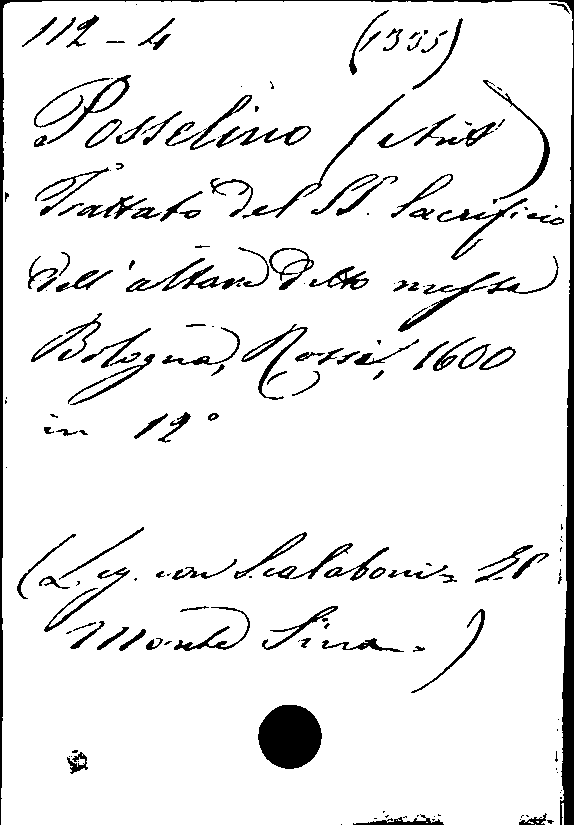 112 - 4 (1335)
Posselino (Ant)
Trattato del SS. Sacrificio
dell'altare detto messa
Bologna, Rossi, 1600
in 12°
(Leg. con Scalaboni, Il
Monte Sina.)